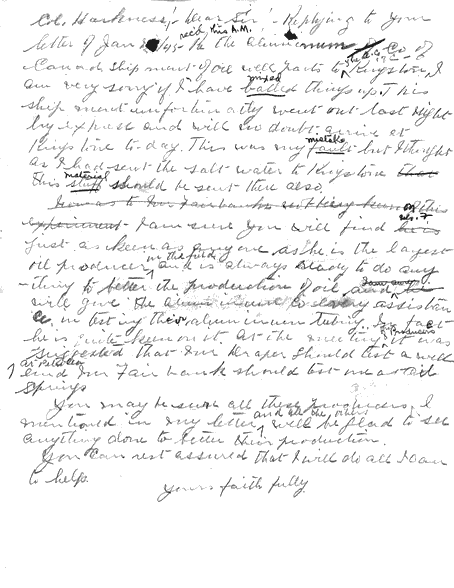 Col. Harkness! - Dear Sir! - Replying to your
rec'd this A.M.
letter of Jan /45 - Re the aluminum Co of
Canada shipment of oil well parts to Kingston, I
am very sorry if I have mixed balled things up. This
shipment unfortunately went out last night
by express and will no doubt arrive at
Kingston to day. This was my mistake fault but I thought
as I had sent the salt water to Kingston that
this material stuff should be sent there also.
experiment I am sure you will find he is
just as keen as anyone, as he is the largest
oil producer in the field and is always ready to do any
-thing to better the production of oil and
will give the every assistan
ce in testing this aluminum tubing. In fact
he is quite keen on it. At the meeting of Producers it was
suggested that Mr Draper should test a well
at Petrolia and Mr Fairbank should test one at Oil
Springs
You may be sure all these Producers I
mentioned in my letter and all the others will be glad to see
anything done to better their production.
You can rest assured that I will do all I can
to help.
Yours faithfully.